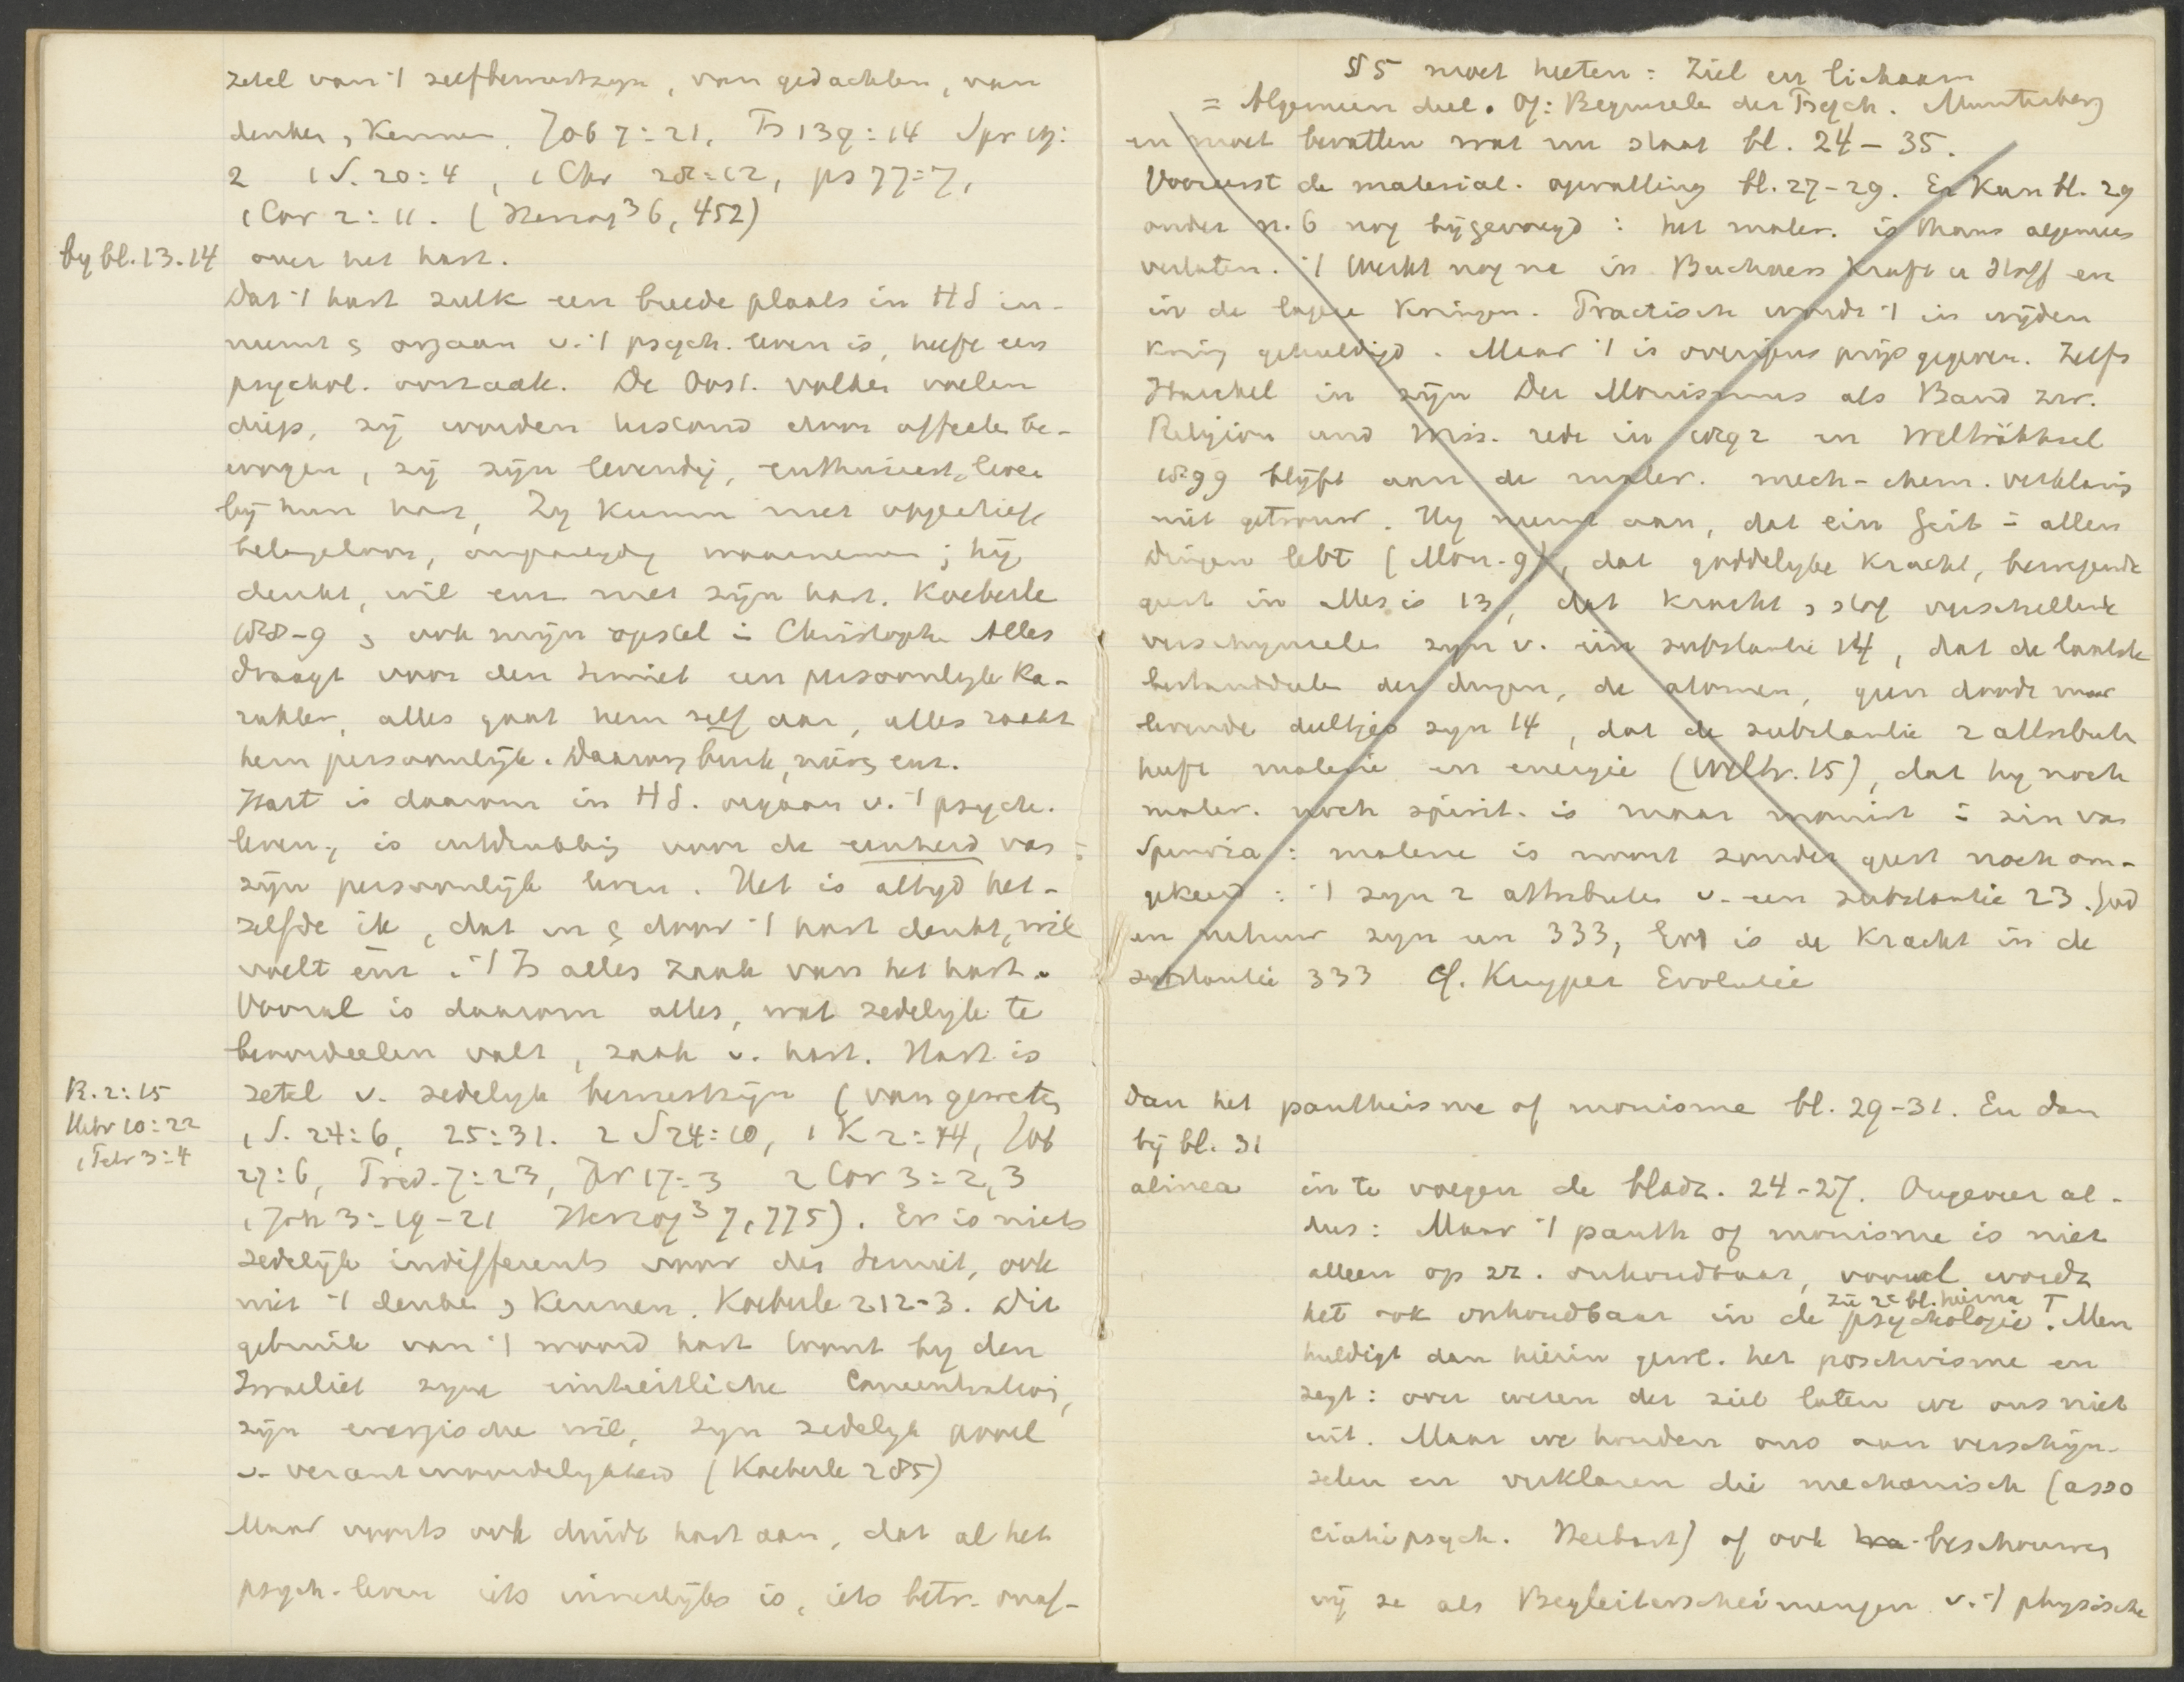 zetel van 't zelfbewustzyn, van gedachten, van
denken, kennen. Job 7:21, Ps 139:14 Spr 19:
2 1 S. 20:4, 1 Chr 28:12, ps 77:7,
1 Cor 2:11. (Herzog³ 6, 452)
by bl. 13.14 over het hart.
Dat 't hart zulk een breede plaats in HS in-
neemt & orgaan v. 't psych. leven is, heeft een
psychol. oorzaak. De Oost. volken voelen
diep, zy worden bestand door affecten be-
wogen, zy zyn levendig, enthusiast, leven
by hun hart, Zy kunnen niet objectief
belangeloos, onpartydig waarnemen; hy
denkt, wil enz met zyn hart. Koeberle
208-9 & ook myn opstel in Christoph. Alles
draagt voor den Semiet een persoonlyk ka-
rakter, alles gaat hem zelf aan, alles raakt
hem persoonlyk. Daarom buik, nieren enz.
Hart is daarom in HS. orgaan v. 't psych.
leven, is uitdrukking voor de eenheid van
zyn persoonlyk leven. Het is altyd het-
zelfde ik, dat in & door 't hart denkt, wil
voelt enz. 't Is alles zaak van het hart.
Vooral is daarom alles, wat zedelyk te
beoordeelen valt, zaak v. hart. Hart is
R. 2:15 zetel v. zedelyk bewustzyn (van geweten
Hebr 10:22 1 S. 24:6, 25:31. 2 S 24:10, 1 K 2:44, Job
1 Petr 3:4 27:6, Pred. 7:23, Jer 17:3 2 Cor 3:2,3
1 Joh 3:19-21 Herzog³ 7, 775). Er is niets
zedelyk indifferents voor den Semiet, ook
niet 't denken & kennen. Koeberle 212-3. Dit
gebruik van 't woord hart toont by den
Israeliet zyne einheitliche Concentration,
zyn energische wil, zyn zedelyk gevoel
v. verantwoordelykheid (Koeberle 285)
Maar voorts ook duidt hart aan, dat al het
psych. leven iets innerlyks is, iets betr. onaf-
§ 5 moet heeten: Ziel en lichaam
= Algemeen deel. Of: Beginselen der Psych. Munsterberg
en moet bevatten wat nu staat bl. 24-35.
Vooreerst de material. opvatting bl. 27-29. En kan bl. 29
onder n. 6 nog bygevoegd: het mater. is thans algemeen
verlaten. 't Werkt nog na in Buchners Kraft u Stoff en
in de lagere kringen. Practisch wordt 't in wyden
kring gehuldigd. Maar 't is overigens prys gegeven. Zelfs
Haeckel in zyn Der Monismus als Band zw.
Religion und Wiss. rede in 1892 en Welträthsel
1899 blyft aan de mater. mech-chem. verklaring
niet getrouw. Hy neemt aan, dat ein Geist in allen
Dingen lebt (Mon. 9), dat goddelyke kracht, bewegende
geest in alles is 13, dat kracht & stof verschillende
verschynselen zyn v. één substantie 14, dat de laatste
bestanddeelen der dingen, de atomen, geen doode maar
levende deeltjes zyn 14, dat de substantie 2 attributen
heeft materie en energie (Weltr. 15), dat hy noch
mater. noch spirit. is maar monist in zin van
Spinoza: materie is nooit zonder geest noch om-
gekeerd: 't zyn 2 attributen v. een substantie 23. God
en natuur zyn een 333, God is de kracht in de
substantie 333 cf. Kuyper Evolutie
Dan het pantheisme of monisme bl. 29-31. En dan
by bl. 31
alinea in te voegen de bladz. 24-27. Ongeveer al-
dus: Maar 't panth of monisme is niet
alleen op zz. onhoudbaar, vooral wordt
zie 2e bl. hierna T
het ook onhoudbaar in de psychologie. Men
huldigt dan hierin gewl. het positivisme en
zegt: over wezen der ziel laten we ons niet
uit. Maar we houden ons aan verschyn-
selen en verklaren die mechanisch (asso
ciatiepsych. Herbart) of ook beschouwen
wy ze als Begleiterscheinungen v. 't physische